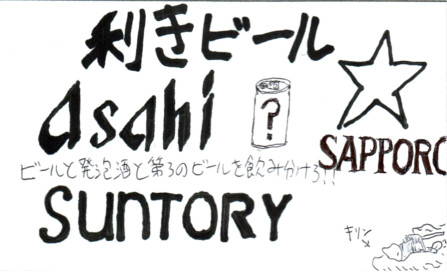 利きビール
asahi
?
SAPPORO
ビールと発泡酒と第3のビールを飲み分けろ!!
SUNTORY
キリン